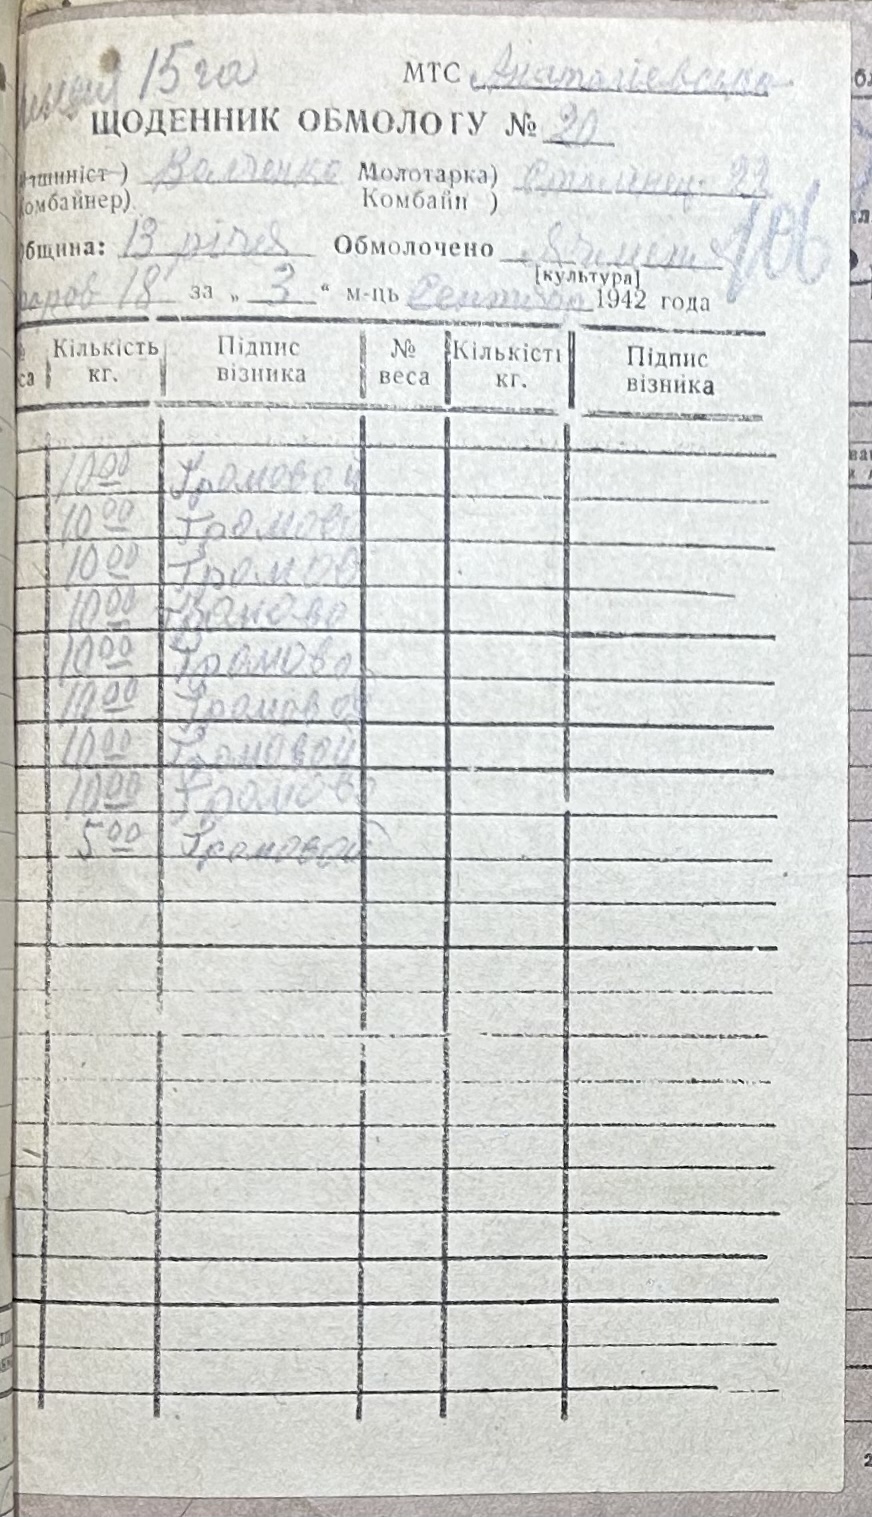 15 га
МТС Анатолієвська
ЩОДЕННИК ОБМОЛОГУ № 20
шиніст ) Молотарка)
омбайнер) Комбайн ) Сталинец 22
бщина: 13 річя Обмолочено Ячмень 106
[культура]
18 за „ 3 “ м-ць Сентябр 1942 года
са Кількість кг. Підпис візника № веса Кількість кг. Підпис візника
10 00 Громовой
10 00 Громово
10 00 Громов
10 00 Громово
10 00 Громово
10 00 Громовой
10 00 Громовой
10 00 Громово
5 00 Громовой